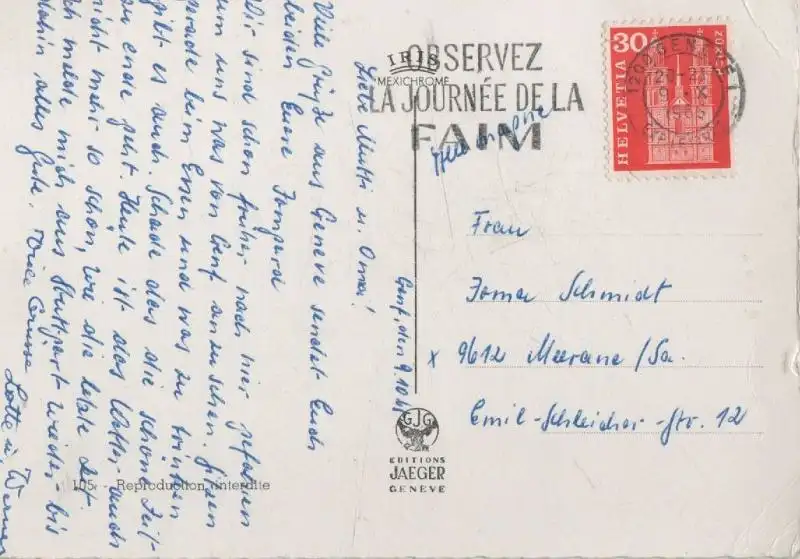 Genf, den 9.10.
Liebe Mutti u. Oma!
Viele Grüße aus Genève sendet Euch
beiden Eure Irmgard
Wir sind schon früher nach hier gefahren
um uns was von Genf anzusehen. Sitzen
gerade beim Essen und was zu trinken
gibt es auch. Schade das die schöne Zeit
zu ende geht. Heute ist das Wetter auch
nicht mehr so schön, wie die letzte Zeit.
Ich melde mich aus Stuttgart wieder bis
dahin alles Gute. Viele Grüsse
Lotte u. Werner
IRIS
MEXICHROME
OBSERVEZ
LA JOURNÉE DE LA
FAIM
HELVETIA
30
Frau
Irma Schmidt
x 9612 Meerane/Sa.
Emil-Schleicher-Str. 12
GJG
EDITIONS
JAEGER
GENÈVE
105 - Reproduction interdite